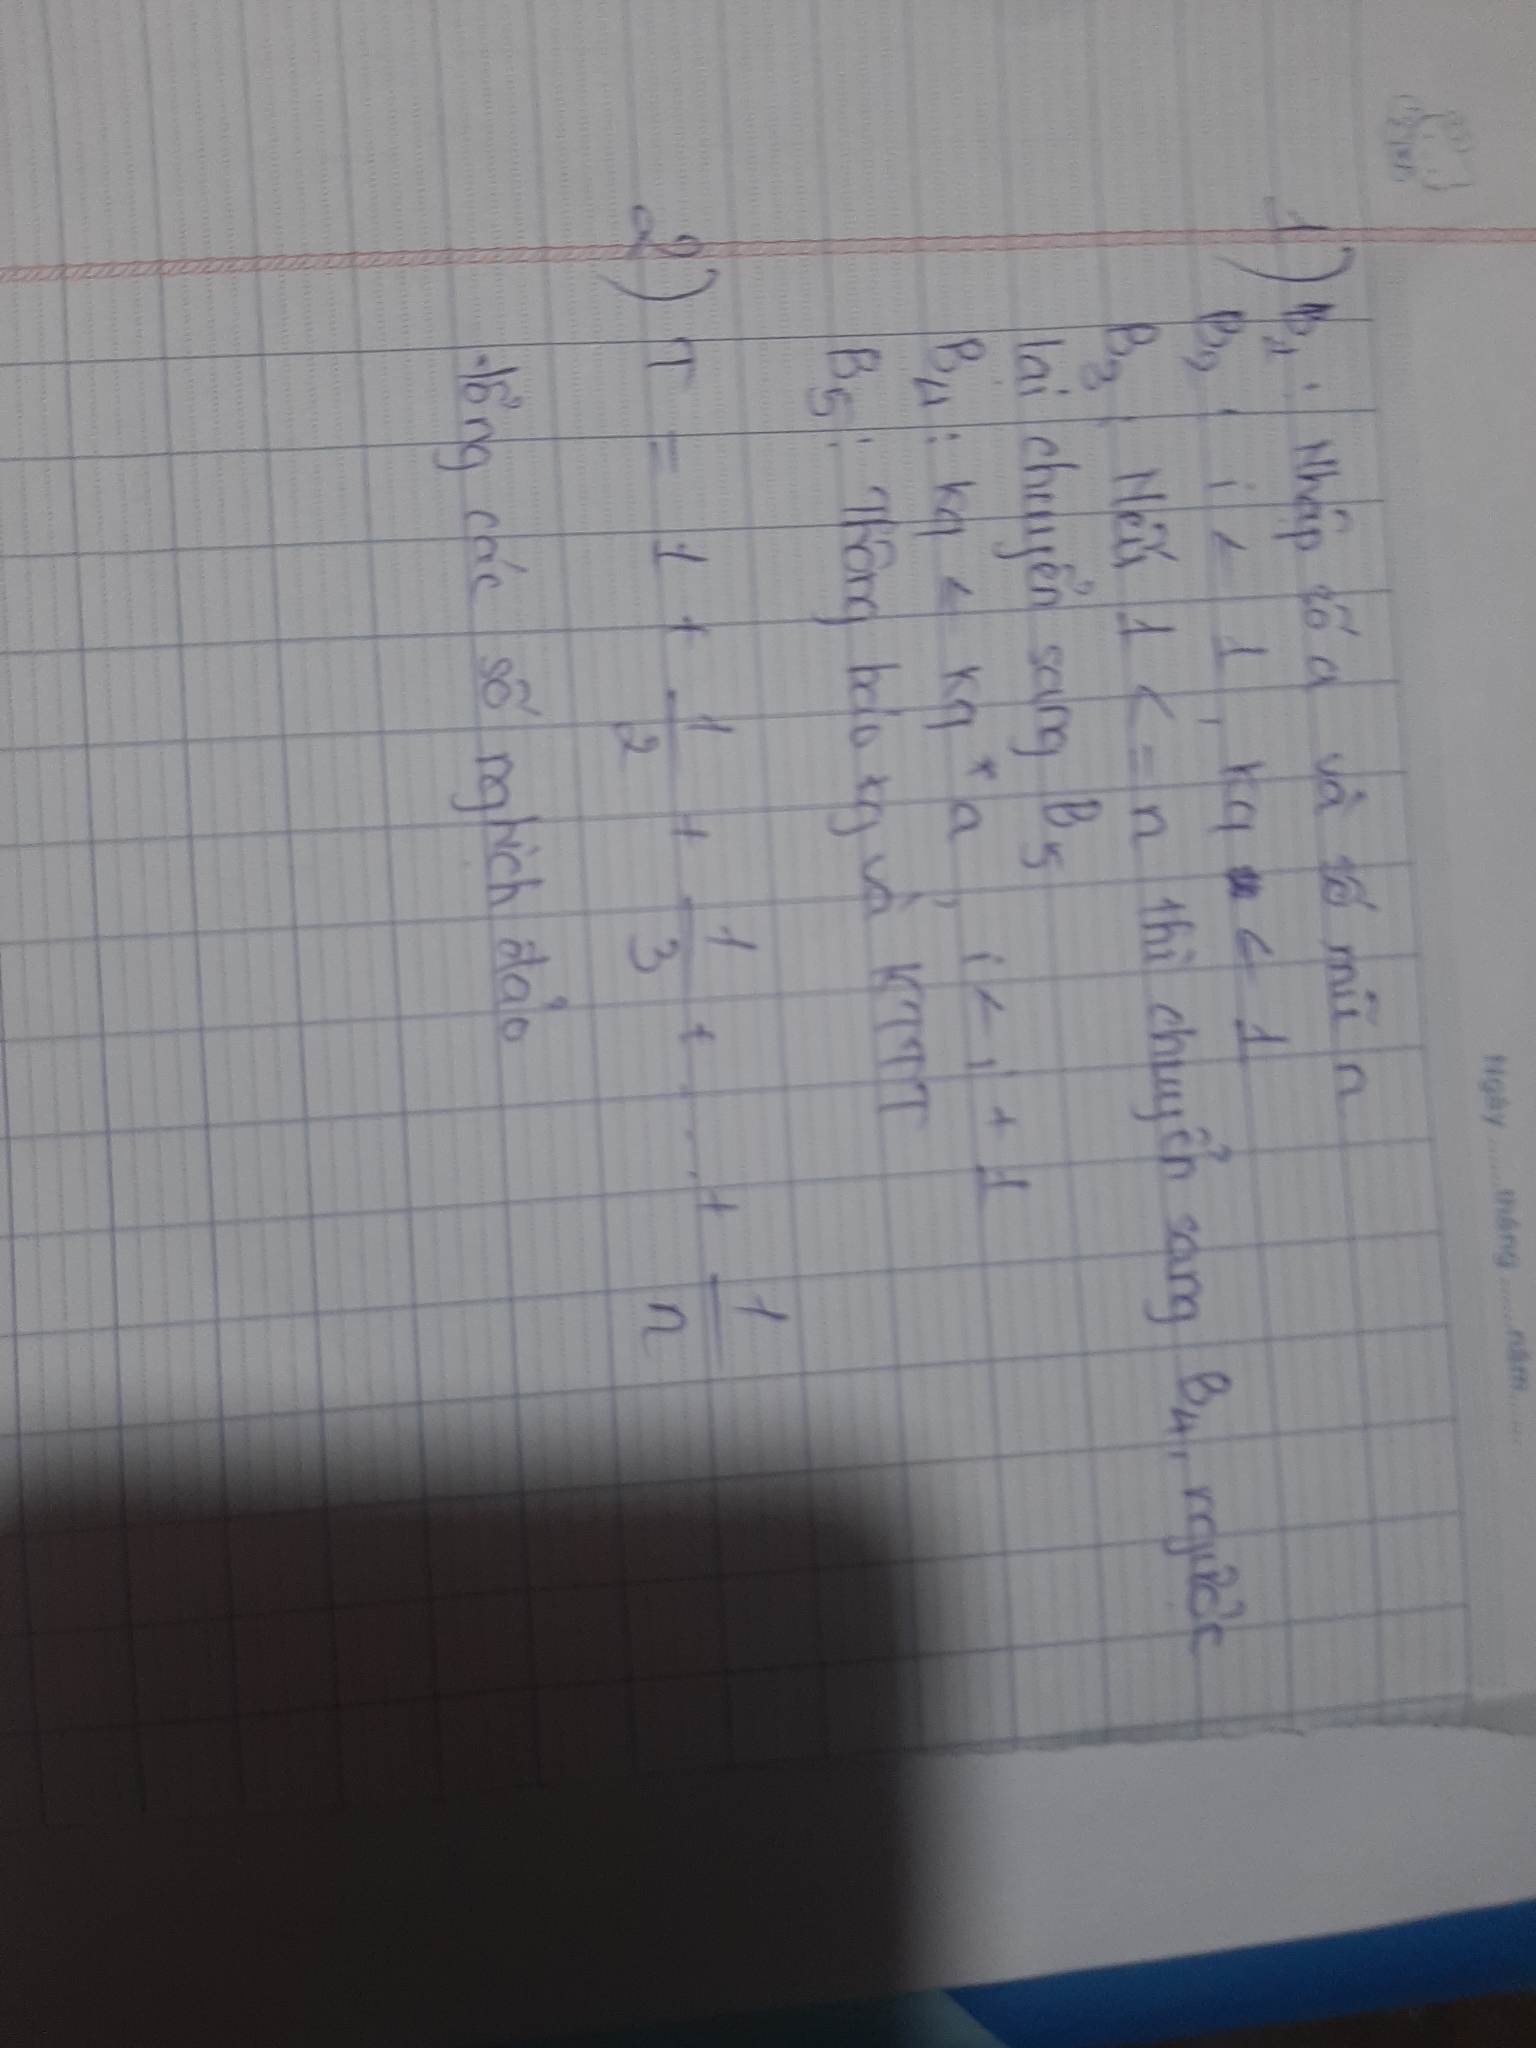 Ngày ...... tháng ...... năm ......
1) B1: Nhập số a và số mũ n
B2: i ← 1, kq ← 1
B3: Nếu 1 <= n thì chuyển sang B4, ngược
lại chuyển sang B5
B4: kq ← kq * a, i ← i + 1
B5: Thông báo kq và KTTT
2) T = 1 + 1/2 + 1/3 + ... + 1/n
tổng các số nghịch đảo